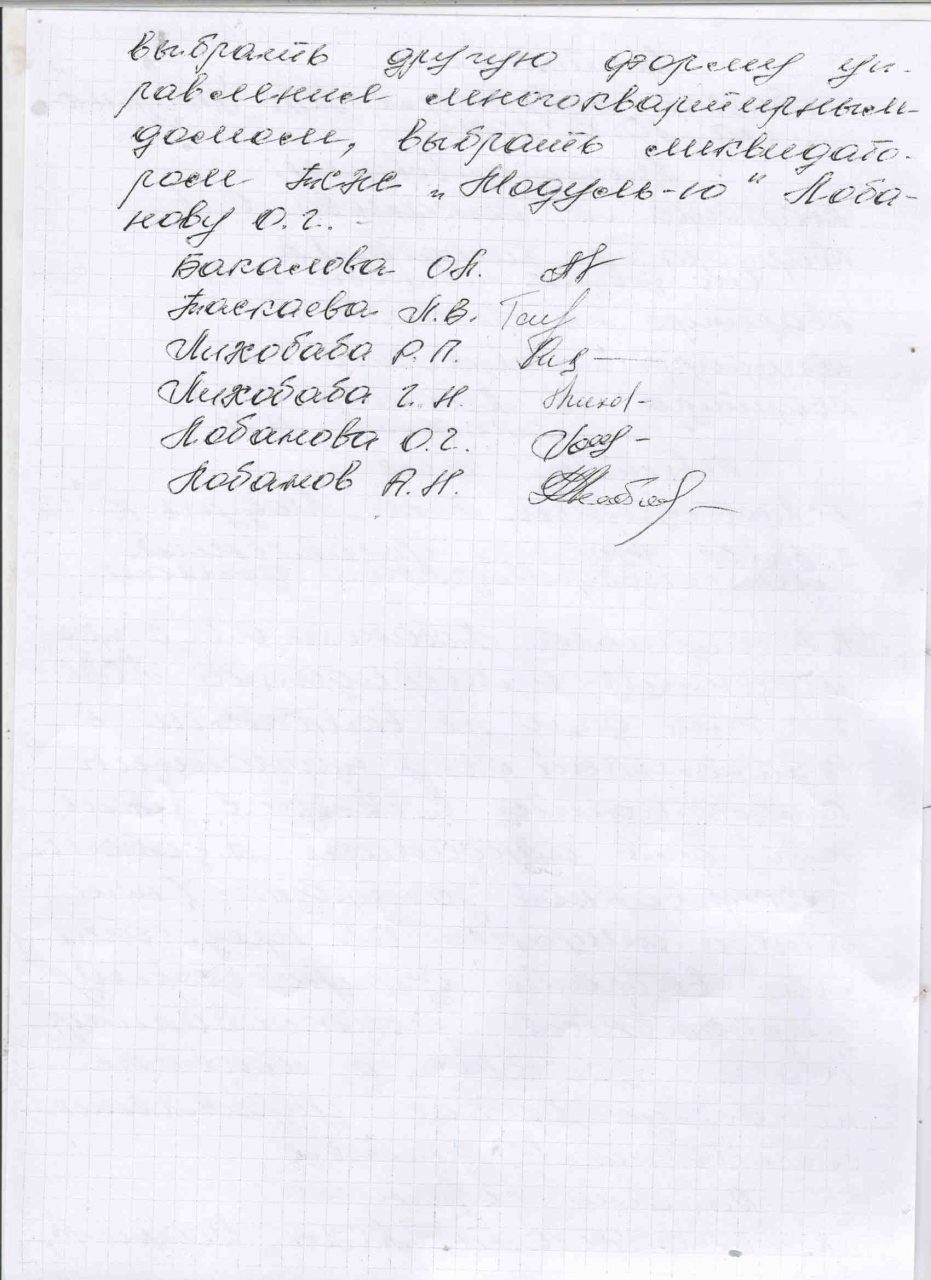 выбрать другую форму уп-
равления многоквартирным
домом, выбрать ликвидато-
ром ТСЖ „Модуль-Ю“ Лоба-
нову О.Г.
Бакалова О.Л.
Таскаева Л.В.
Лихобаба Р.П.
Лихобаба Г.Н.
Лобанова О.Г.
Лобанов А.Н.